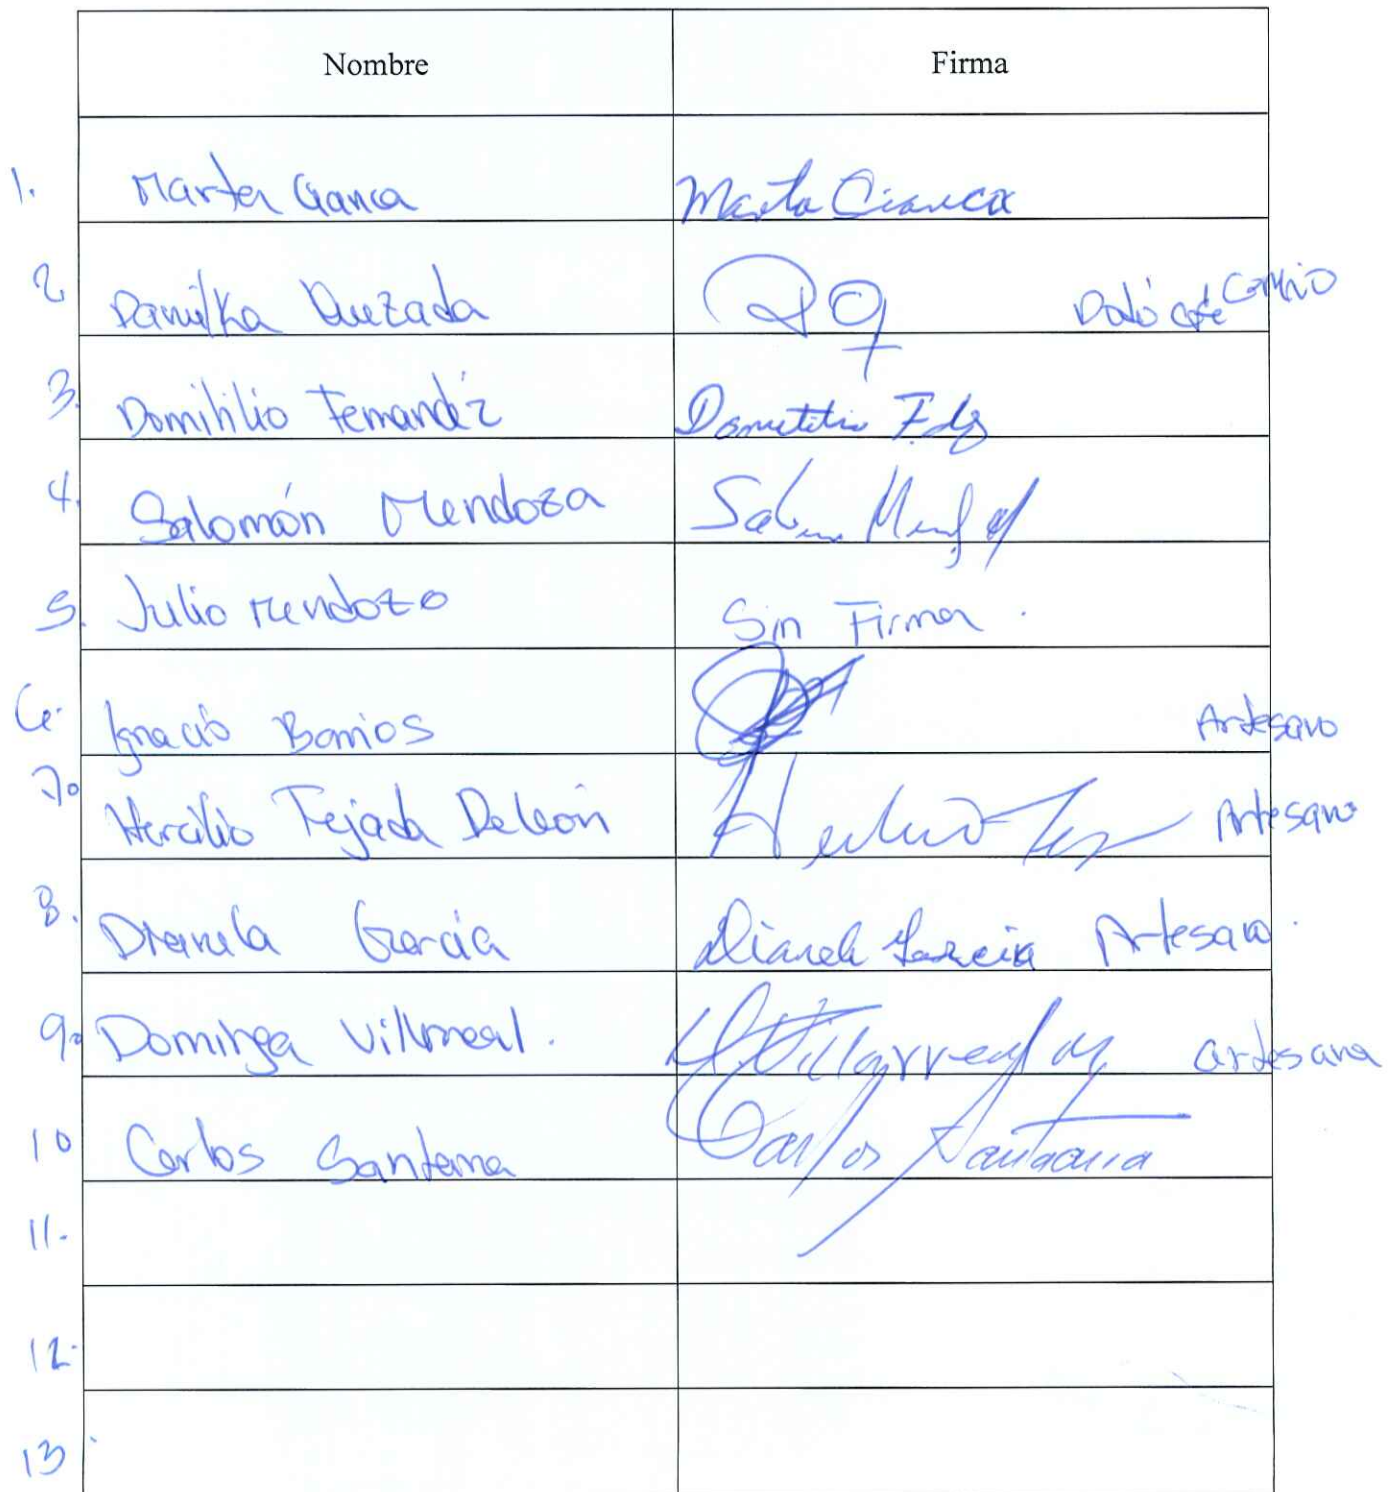 Nombre Firma
1. Marta Cianca Marta Cianca
2 Danilka Quezada DQ
3. Domitilio Fernandez Domitilio Fdz
4. Salomón Mendoza
5. Julio Mendoza Sin Firma.
6. Ignacio Barrios Artesano
7. Hercilio Tejada De León Artesano
8. Dianela García Dianela García Artesano.
9. Dominga Villarreal. D. Villarreal artesana
10 Carlos Santana Carlos Santana
11.
12.
13